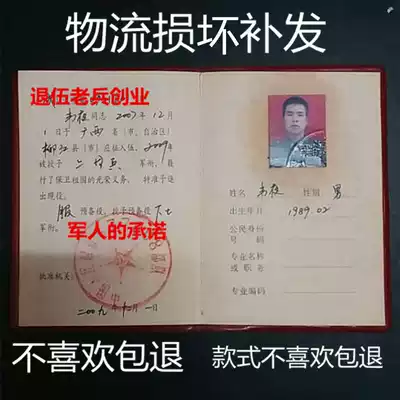 物流损坏补发
退伍老兵创业
韦夜同志2007年12月
1日于广西省(市、自治区)
柳江县(市)应征入伍,2009
年被授予二等兵军衔,履
行了保卫祖国的光荣义务。特准予退
出现役。
服预备役,授予预备役下士
军衔。
军人的承诺
批准机关:
二〇〇九年十二月一日
姓名 韦夜 性别 男
出生年月 1989.02
公民身份
号码
专业名称
或职务
专业编码
不喜欢包退
款式不喜欢包退